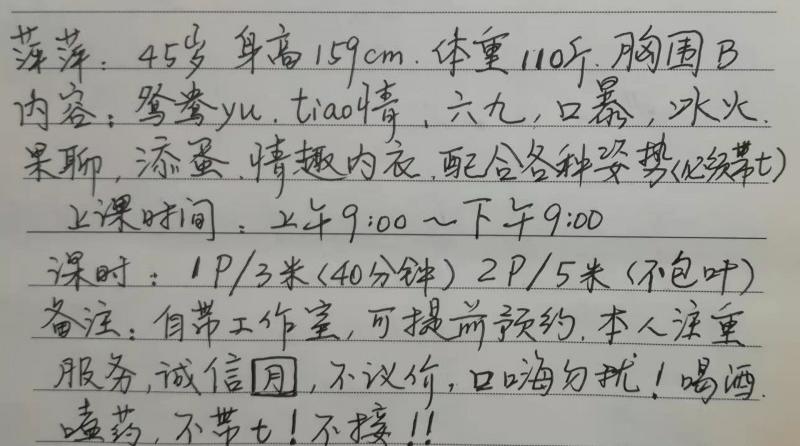 萍萍：45岁 身高159cm. 体重110斤. 胸围B
内容：鸳鸯yu. tiao情、六九，口暴，冰火.
果聊，添蛋.情趣内衣.配合各种姿势(必须带t)
上课时间：上午9:00～下午9:00
课时：1P/3米(40分钟) 2P/5米(不包叶)
备注：自带工作室，可提前预约.本人注重
服务，诚信月，不议价，口嗨勿扰！喝酒.
嗑药，不带t！不接！！